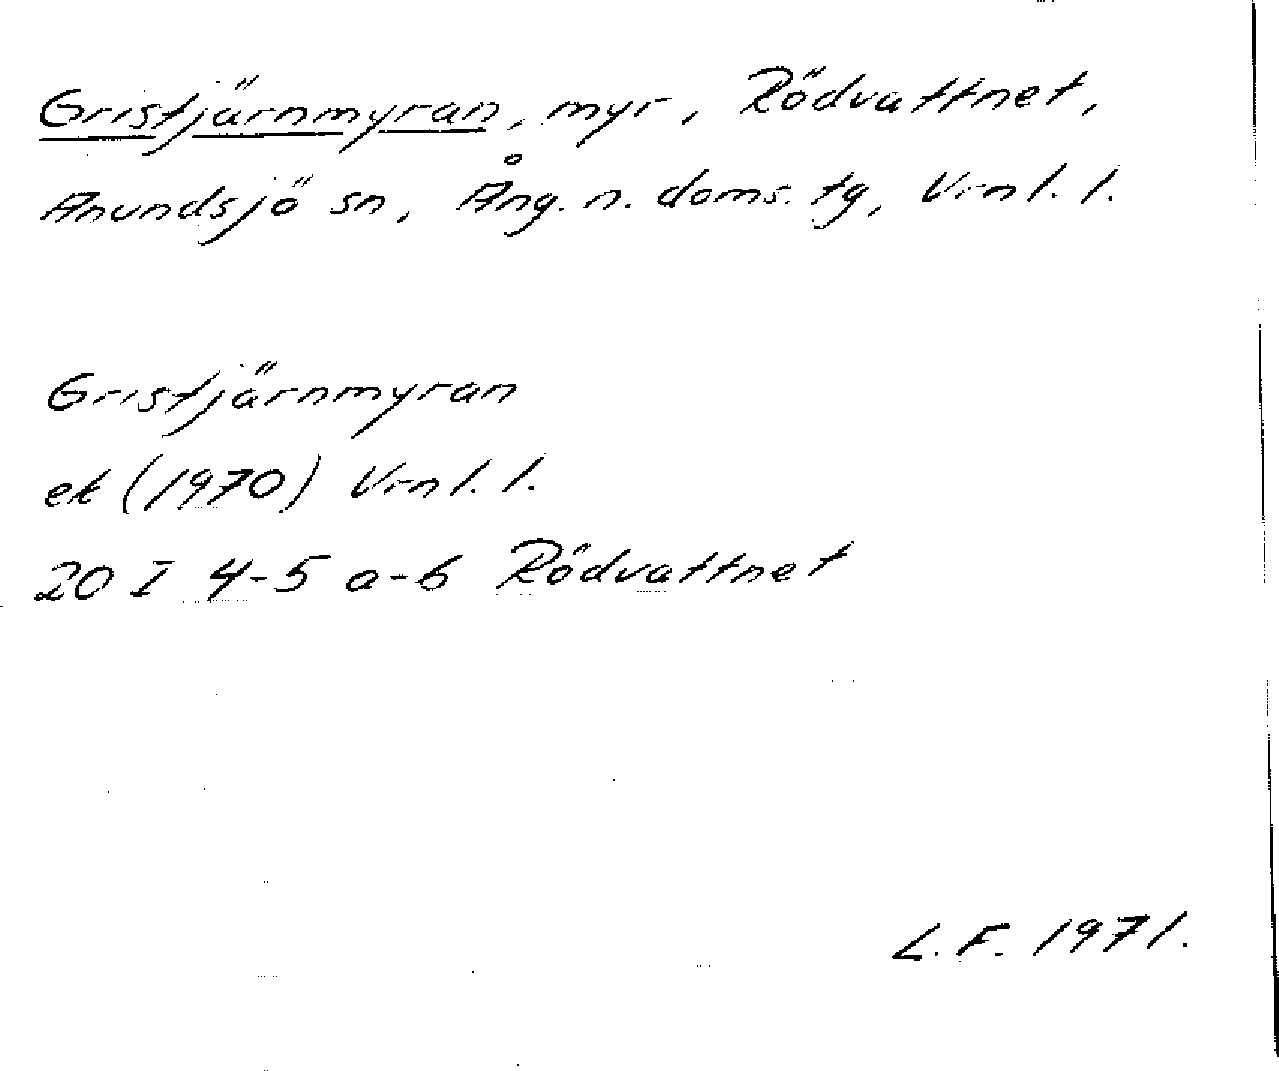 Gristjärnmyran, myr, Rödvattnet,
Anundsjö sn, Ång. n. doms. tg, Vrnl. l.
Gristjärnmyran
ek (1970) Vrnl. l.
20 I 4-5 a-b Rödvattnet
L. F. 1971.